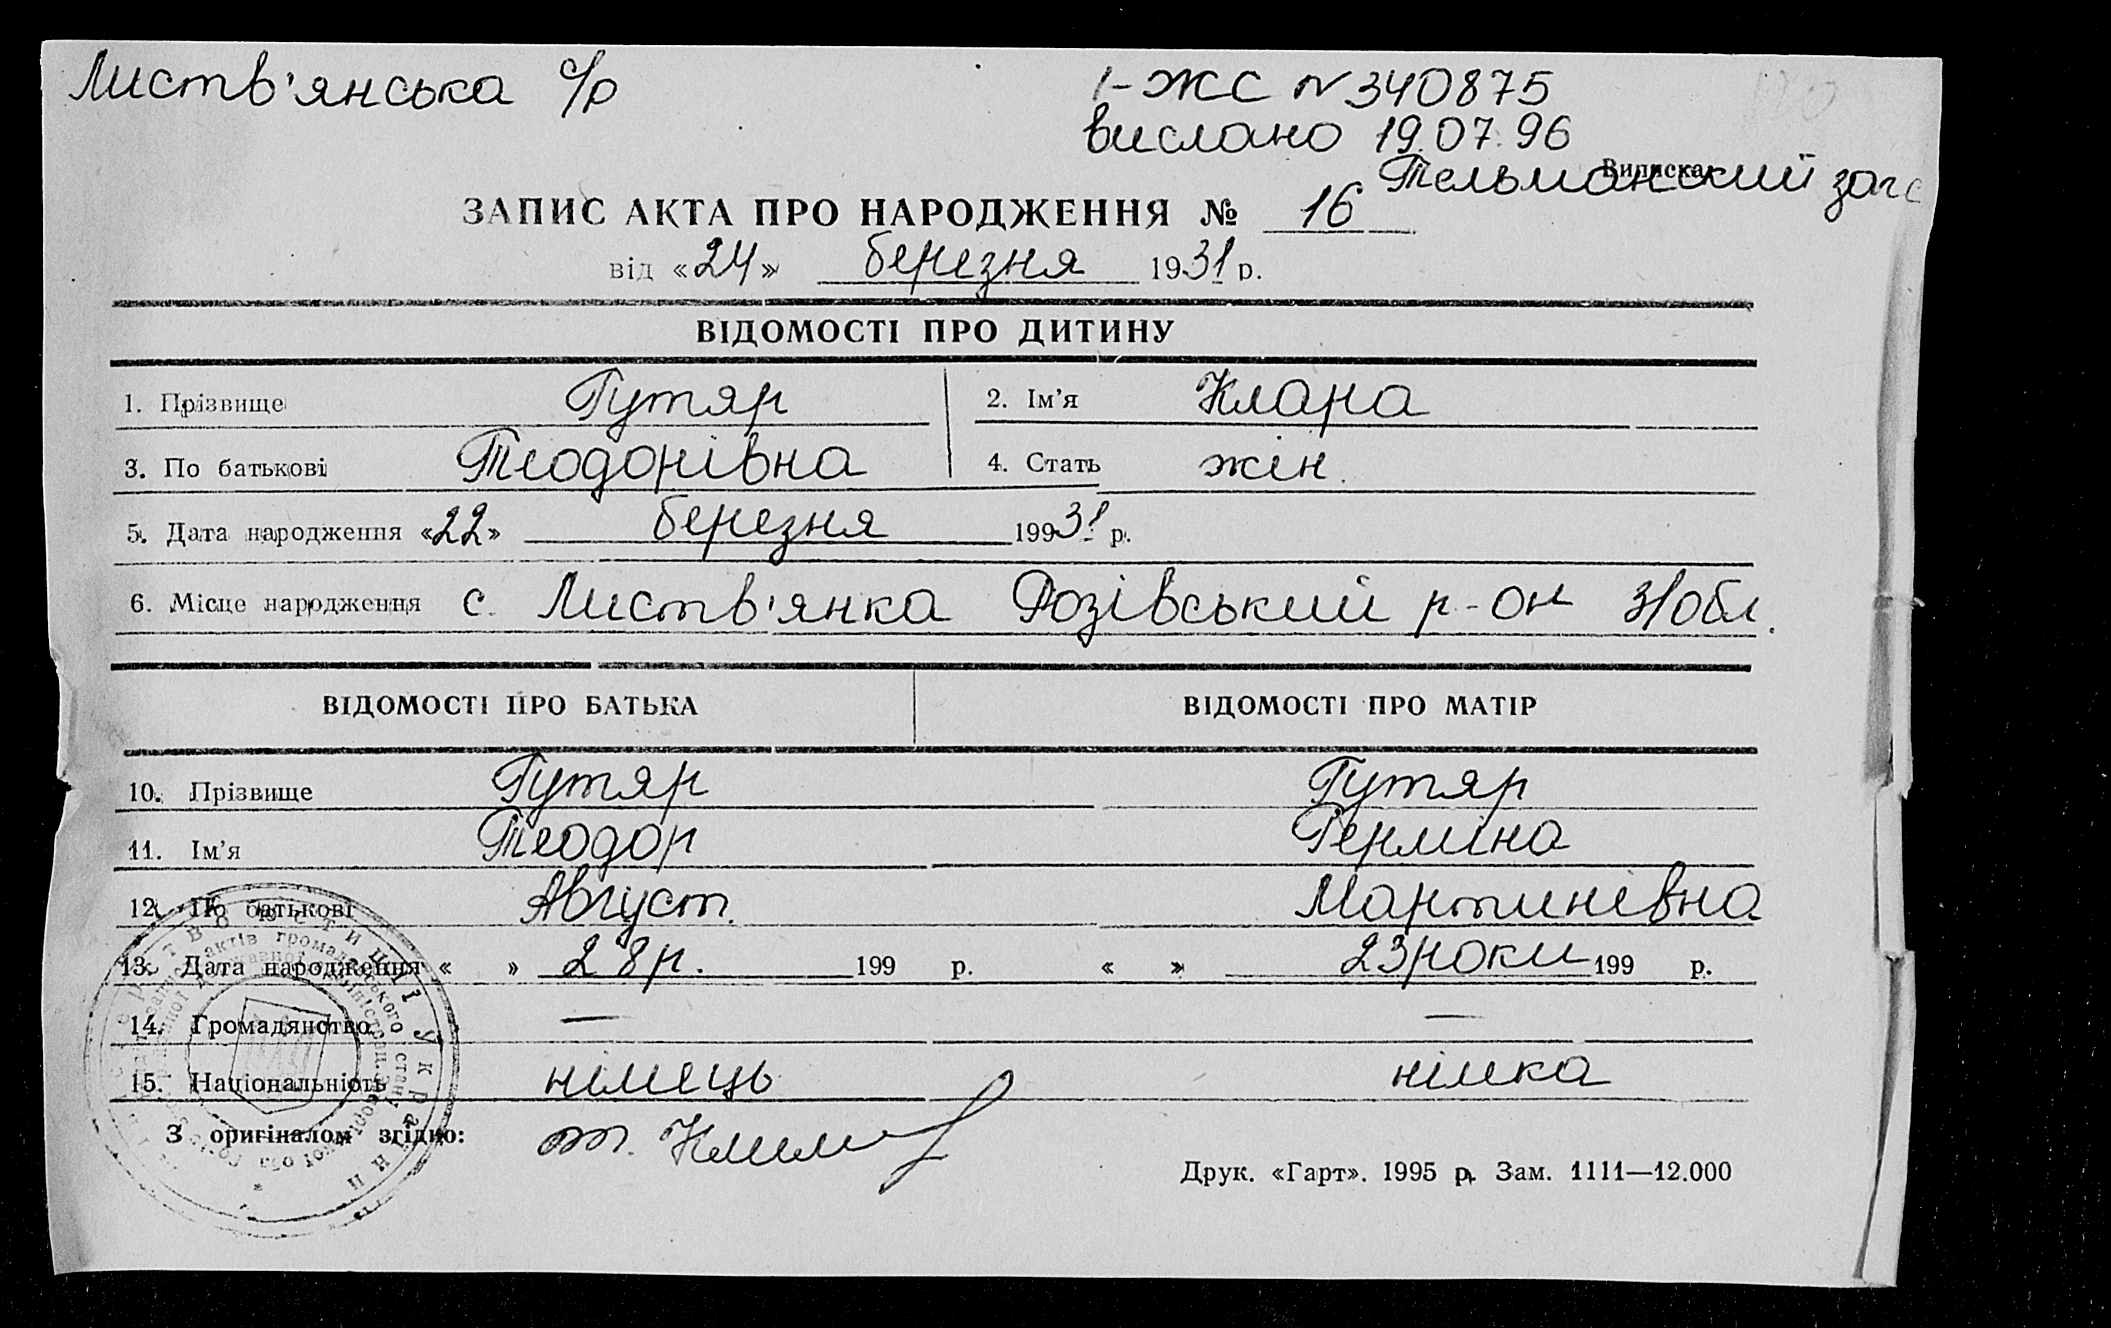 Листв'янська с/р
І-ЖС № 340875
вислано 19.07.96
Виписка
Тельманский загс
ЗАПИС АКТА ПРО НАРОДЖЕННЯ № 16
від «24» березня 1931 р.
ВІДОМОСТІ ПРО ДИТИНУ
1. Прізвище Гутяр 2. Ім'я Клара
3. По батькові Теодорівна 4. Стать жін.
5. Дата народження «22» березня 19931 р.
6. Місце народження с. Листв'янка Розівський р-он З/обл.
ВІДОМОСТІ ПРО БАТЬКА ВІДОМОСТІ ПРО МАТІР
10. Прізвище Гутяр Гутяр
11. Ім'я Теодор Герміна
12. По батькові Август. Мартинівна
13. Дата народження « » 28р. 199 р. « » 23роки 199 р.
14. Громадянство — —
15. Національність німець німка
З оригіналом згідно:
Друк. «Гарт». 1995 р. Зам. 1111—12.000